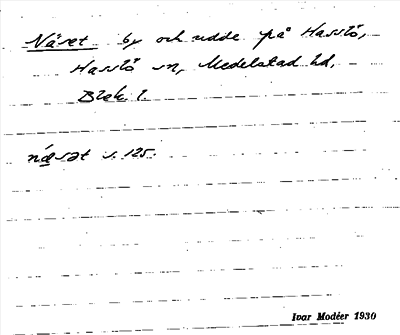 Näset by och udde på Hasslö,
Hasslö sn, Medelstad hd,
Blek. l.
næ̀sət s. 125.
Ivar Modéer 1930